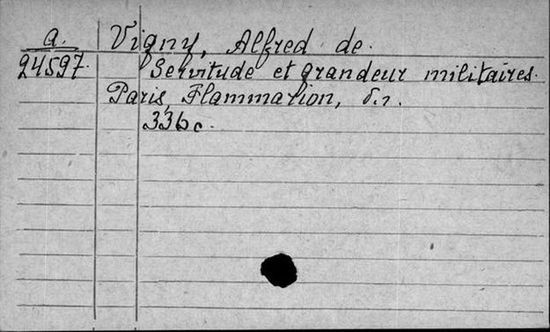 a. Vigny, Alfred de.
24597. Servitude et grandeur militaires.
Paris, Flammarion, s.r.
336 c.